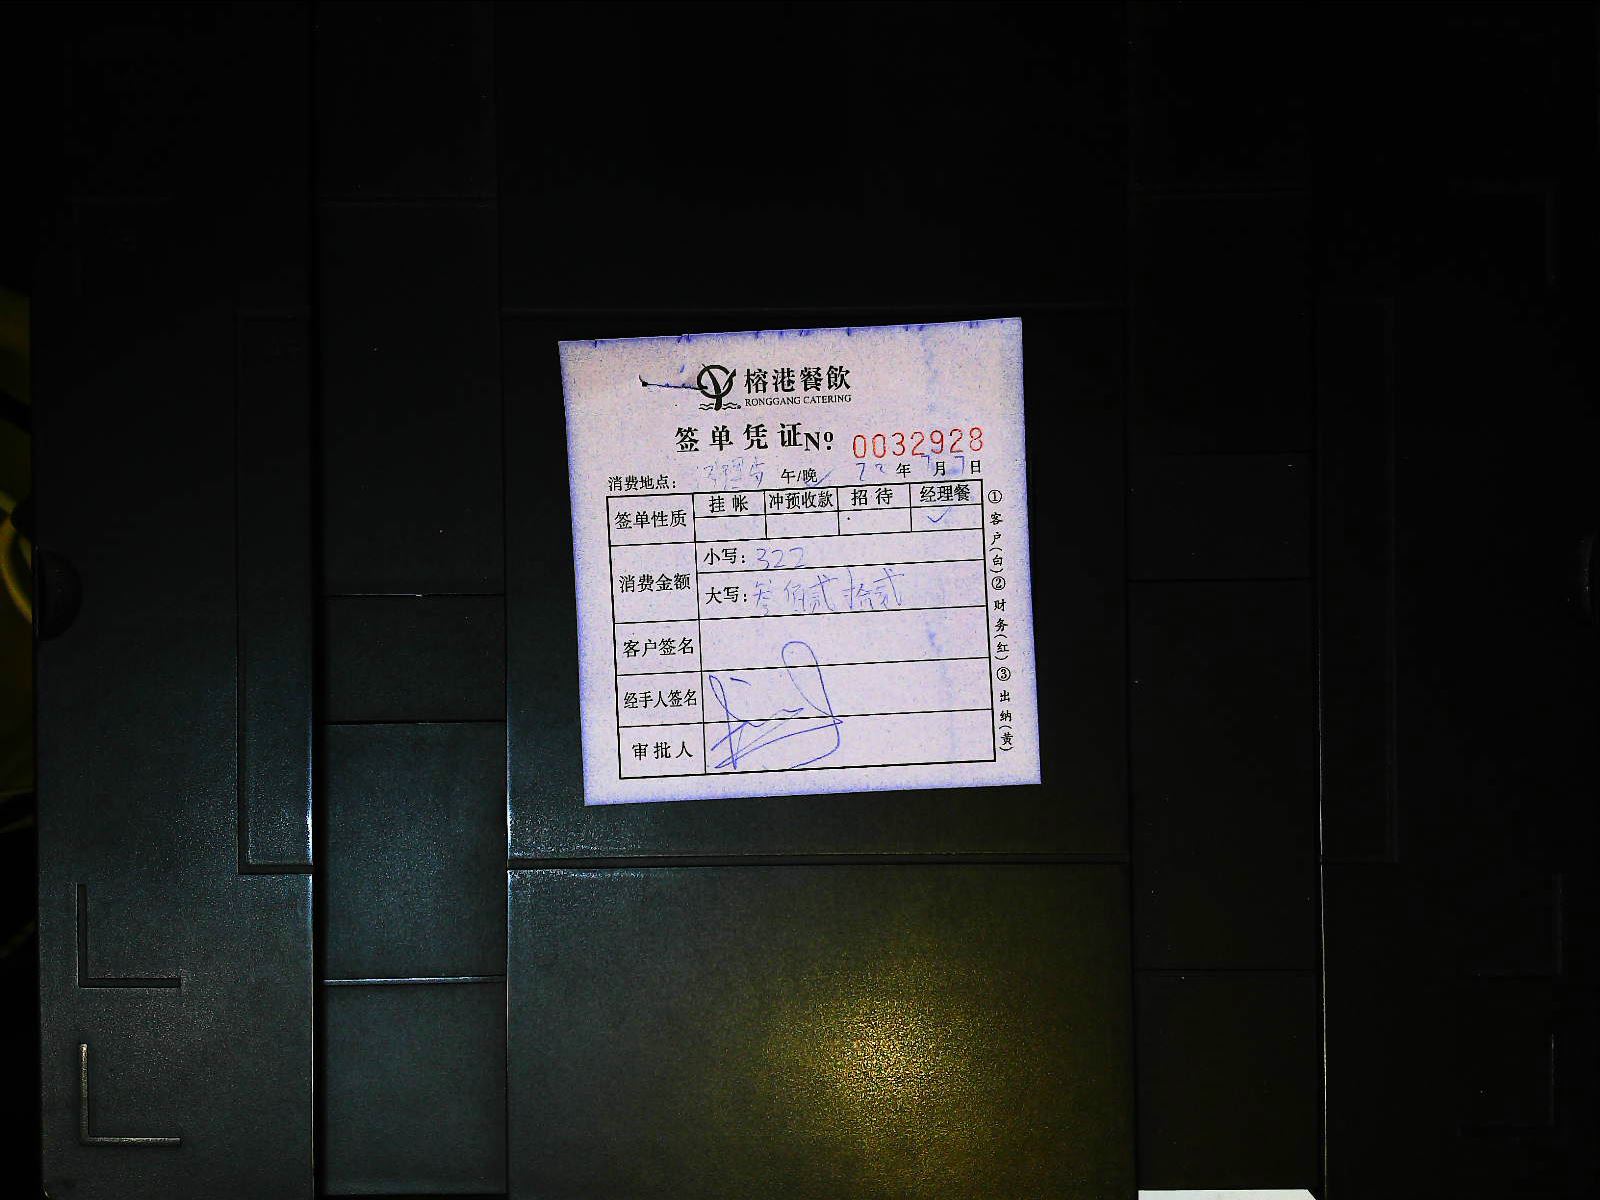 榕港餐飲
RONGGANG CATERING
签单凭证№ 0032928
消费地点： 午/晚 年7月7日
签单性质 挂帐 冲预收款 招待 经理餐
✓
消费金额 小写：322
大写：叁佰贰拾贰
客户签名
经手人签名
审批人
①客户(白)②财务(红)③出纳(黄)